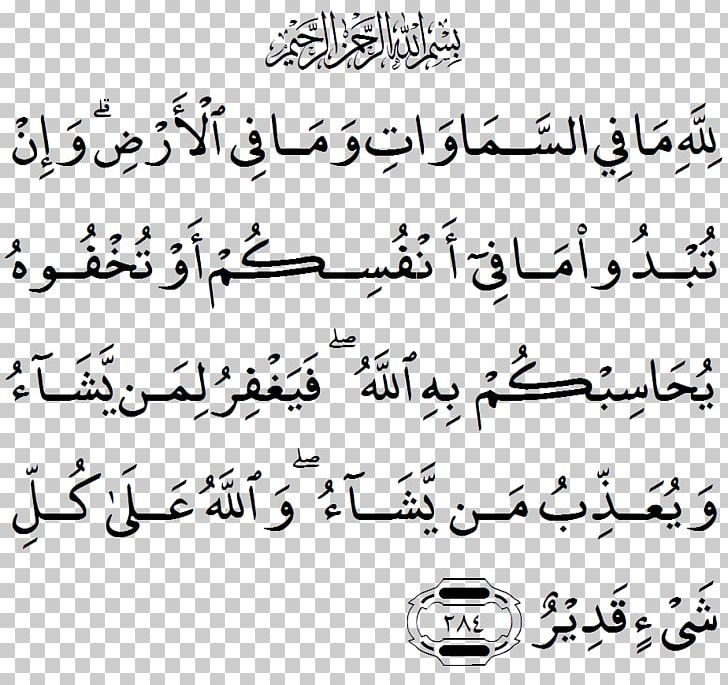 بِسْمِ اللَّهِ الرَّحْمَٰنِ الرَّحِيمِ
لِلَّهِ مَا فِي السَّمَاوَاتِ وَمَا فِي ٱلْأَرْضِ ۗ وَإِنْ
تُبْدُواْ مَا فِىٓ أَنْفُسِكُمْ أَوْ تُخْفُوهُ
يُحَاسِبْكُمْ بِهِ ٱللَّهُ ۖ فَيَغْفِرُ لِمَن يَّشَآءُ
وَيُعَذِّبُ مَن يَّشَآءُ ۖ وَٱللَّهُ عَلَىٰ كُلِّ
شَىْءٍ قَدِيْرٌ ٢٨٤